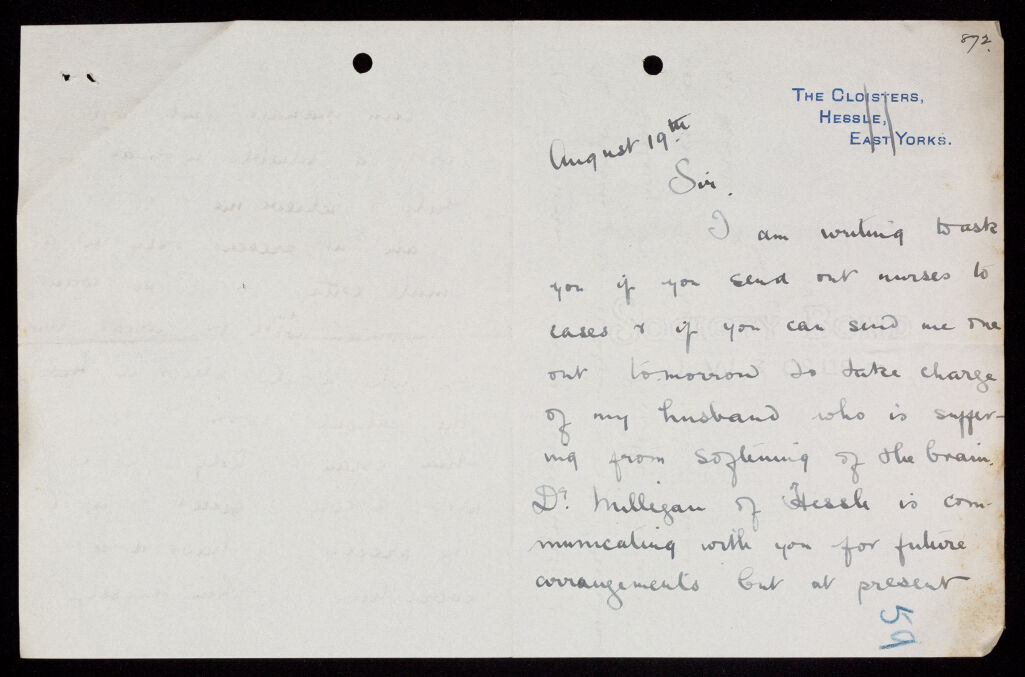 872.
THE CLOISTERS,
HESSLE,
EAST YORKS.
August 19th
Sir.
I am writing to ask
you if you send out nurses to
cases & if you can send me one
out tomorrow to take charge
of my husband who is suffer-
ing from softening of the brain.
Dr. Milligan of Hessle is com-
municating with you for future
arrangements but at present
59